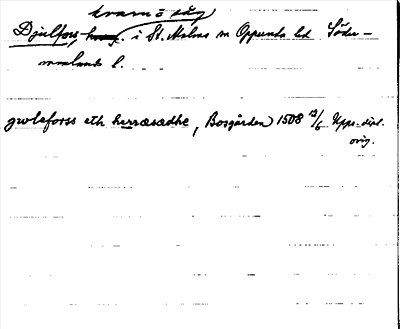 kvarn o såg
Djulfors, i St. Malms sn Oppunda hd Söder-
manlands l.
gwlaforss eth herræsædhe, Bosgården 1508 12/6 Upps. dipl.
orig.